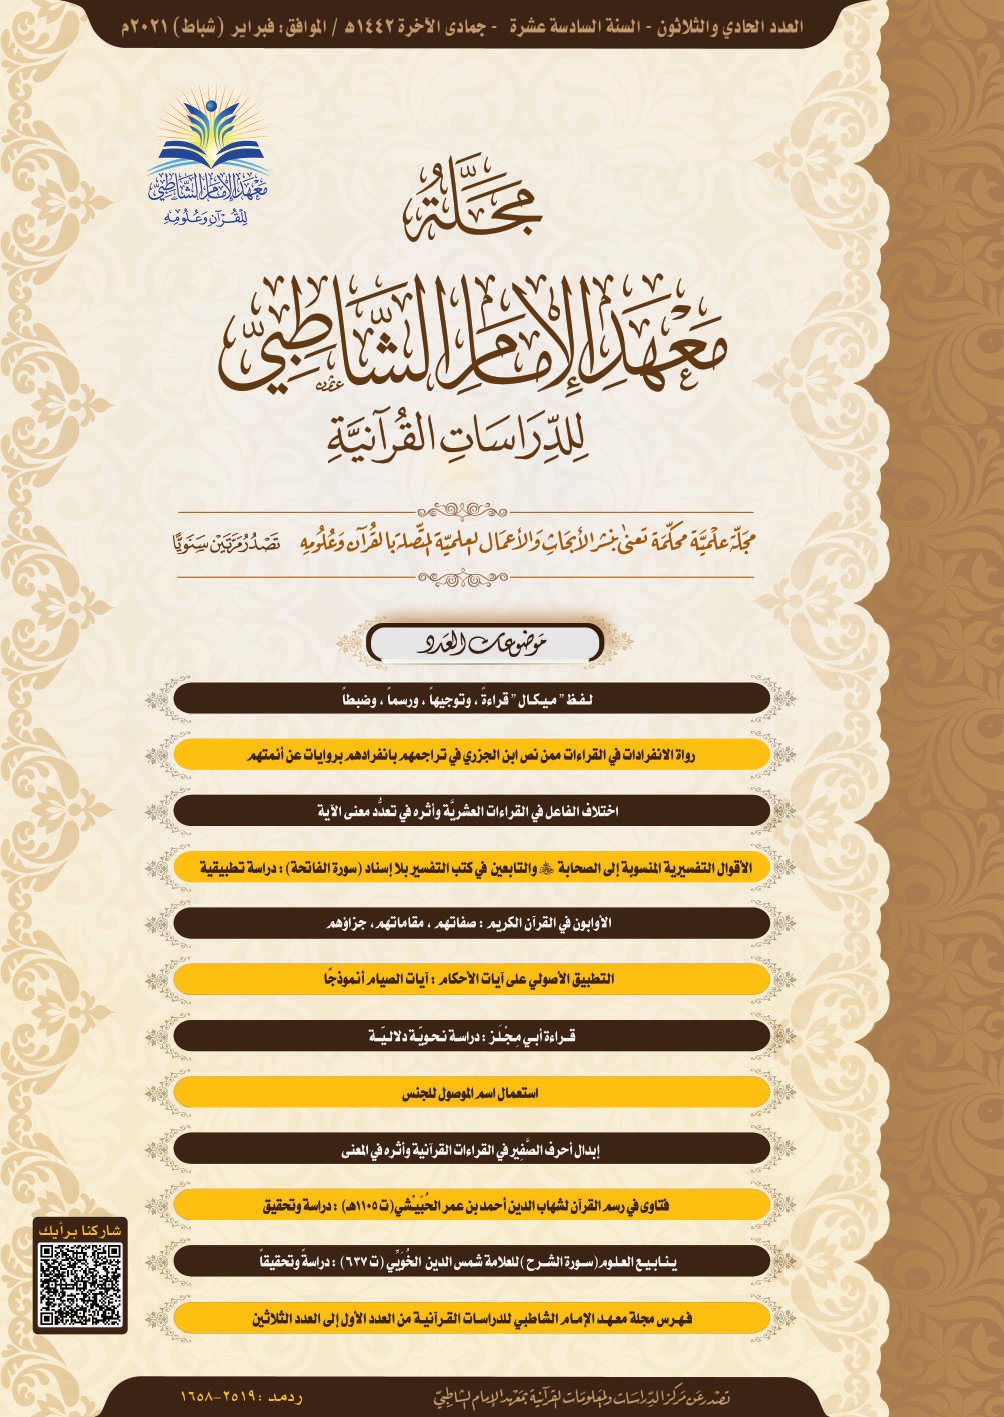 العدد الحادي والثلاثون - السنة السادسة عشرة - جمادى الآخرة ١٤٤٢هـ / الموافق: فبراير (شباط) ٢٠٢١م
معهد الإمام الشاطبي
للقرآن وعلومه
مَجَلَّةُ
مَعْهَدِ الإِمَامِ الشَّاطِبِيِّ
لِلدِّرَاسَاتِ القُرْآنِيَّةِ
مجلّة علميّة محكّمة تعنى بنشر الأبحاث والأعمال العلميّة المتّصلة بالقرآن وعلومه تصدر مرتين سنويًّا
موضوعات العدد
لفظ "ميكال" قراءةً ، وتوجيهاً ، ورسماً ، وضبطاً
رواة الانفرادات في القراءات ممن نص ابن الجزري في تراجمهم بانفرادهم بروايات عن أئمتهم
اختلاف الفاعل في القراءات العشريَّة وأثره في تعدُّد معنى الآية
الأقوال التفسيرية المنسوبة إلى الصحابة ﷺ والتابعين في كتب التفسير بلا إسناد (سورة الفاتحة) : دراسة تطبيقية
الأوابون في القرآن الكريم : صفاتهم ، مقاماتهم، جزاؤهم
التطبيق الأصولي على آيات الأحكام : آيات الصيام أنموذجًا
قراءة أبي مِجْلَز : دراسة نحويّة دلاليّة
استعمال اسم الموصول للجنس
إبدال أحرف الصَّفِير في القراءات القرآنية وأثره في المعنى
فتاوى في رسم القرآن لشهاب الدين أحمد بن عمر الحُبَيْشي(ت١١٠٥هـ) : دراسة وتحقيق
ينابيع العلوم(سورة الشرح)للعلامة شمس الدين الخُوَيِّي (ت ٦٣٧) : دراسةً وتحقيقاً
فهرس مجلة معهد الإمام الشاطبي للدراسات القرآنية من العدد الأول إلى العدد الثلاثين
شاركنا برأيك
تصدر عن مركز الدّراسات والمعلومات القرآنية بمعهد الإمام الشاطبيّ
ردمد : ٢٥١٩-١٦٥٨